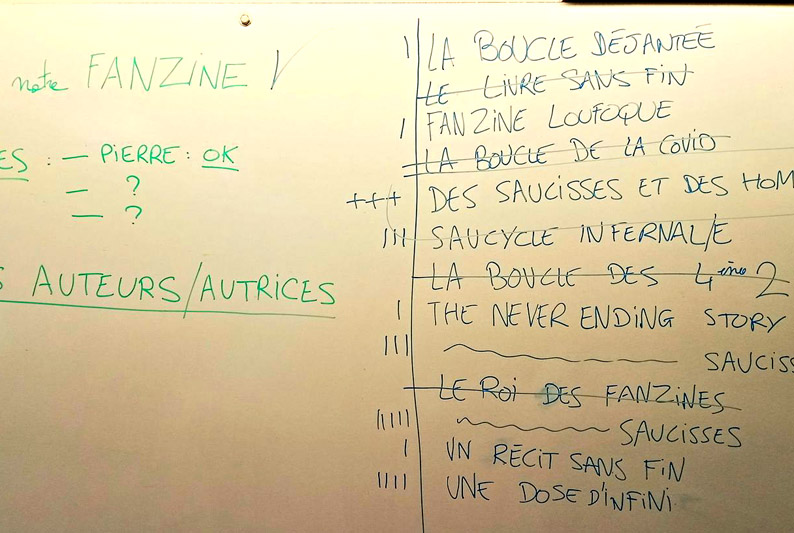 notre FANZINE
ES : — PIERRE : OK
— ?
— ?
S AUTEURS/AUTRICES
I LA BOUCLE DÉJANTÉE
LE LIVRE SANS FIN
I FANZINE LOUFOQUE
LA BOUCLE DE LA COVID
+++ DES SAUCISSES ET DES HOM
III SAUCYCLE INFERNAL/E
LA BOUCLE DES 4ème 2
I THE NEVER ENDING STORY
III SAUCISS
LE ROI DES FANZINES
IIIII SAUCISSES
I UN RÉCIT SANS FIN
IIII UNE DOSE D'INFINI